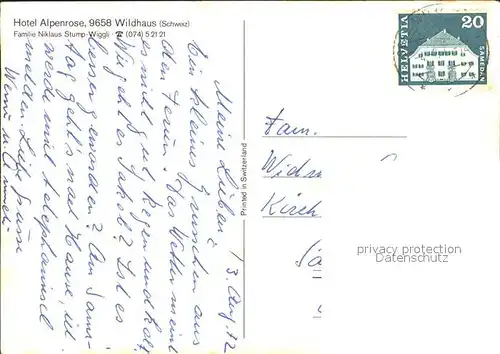 Hotel Alpenrose, 9658 Wildhaus (Schweiz)
Familie Niklaus Stump-Wiggli · ☎ (074) 5 21 21
3. Aug. 72
Meine Lieben!
Ein kleines Grüsschen aus
den Ferien. Das Wetter meint
es nicht gut, Regen und kalt.
Wie geht es Jakob? Ist es
besser geworden? Am Sams-
tag geht's nach Hause, ich
werde mich telephonisch
melden. Liebe Grüsse
Printed in Switzerland
HELVETIA
20
SAMEDAN
Fam.
Widm
Kirch
privacy protection
DATENSCHUTZ